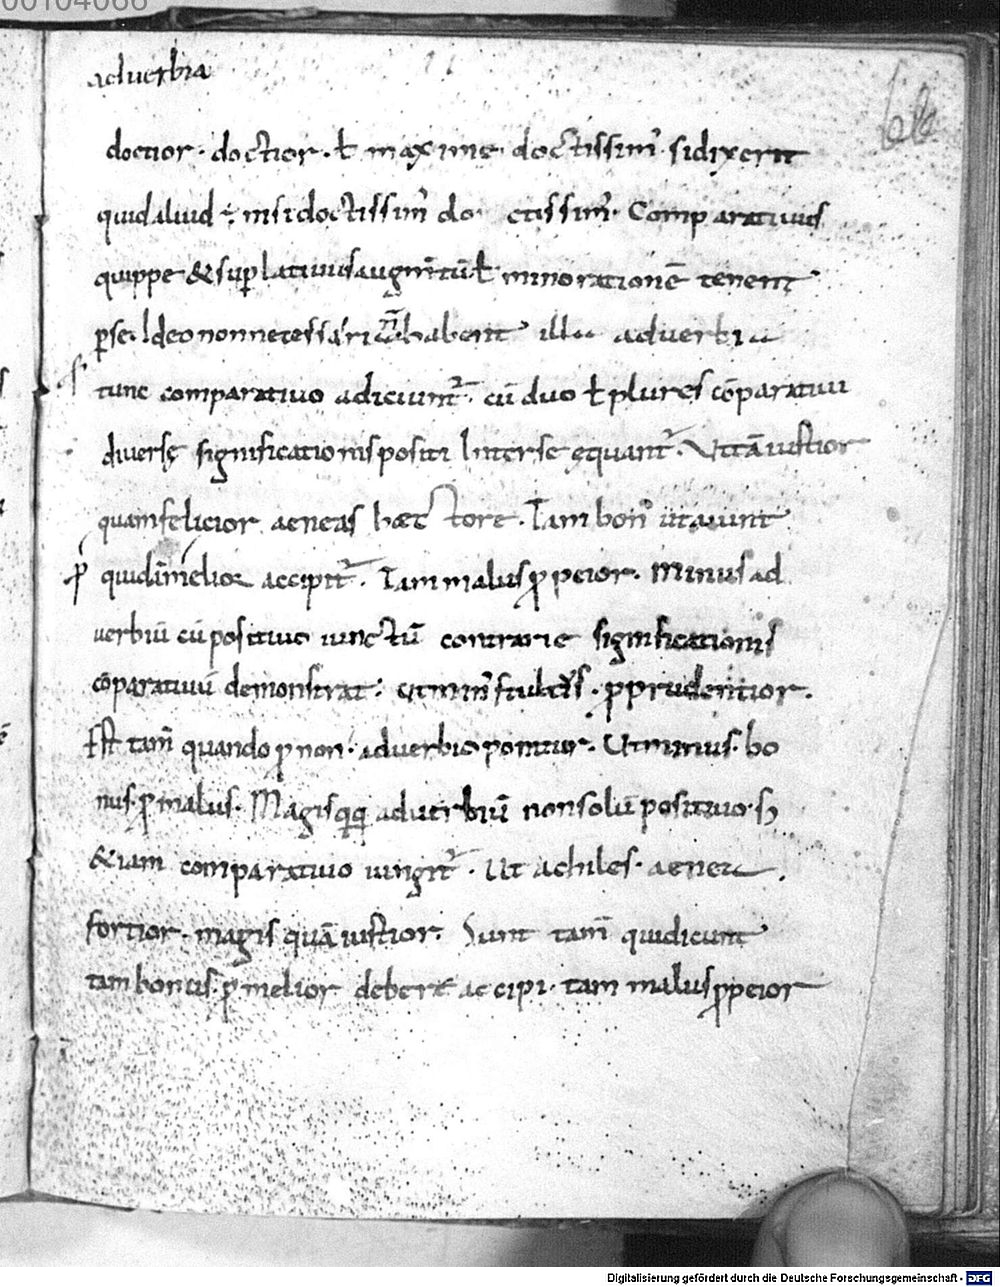 00104066
adverbia
66
doctior · doctior · ł maxime doctissim᾽ · si dixerit
quid aliud ÷ nisi doctissim᾽ do ctissim᾽ · Comparativus
quippe & suplativus augm̄tū ł minorationē tenent
p se · Ideo non necessari n̄ habent illa adverbia
tunc comparativo adiciunt᾽ · cū duo ł plures cōparativi
diversę significationis positi Inter se ęquant᾽ · Ut tā iustior
quam felicior aeneas haectore · Tam bon᾽ ut aiunt
quidā melior accipit᾽ · Tam malus p peior · Minus ad
verbiū cū positivo iunctū contrarie significationis
cōparativū demonstrat · ut min᾽ stultus · p prudentior ·
Est tam̄ quando p non · adverbio ponitur · Ut minus · bo
nus · p malus · Magis qq; adverbiū non solū positivo · s;
&iam comparativo iungit᾽ · Ut achiles · aenea ·
fortior · magis quā iustior · Sunt tam̄ qui dicunt
tam bonus · p melior debere accipi · tam malus p peior
Digitalisierung gefördert durch die Deutsche Forschungsgemeinschaft - DFG